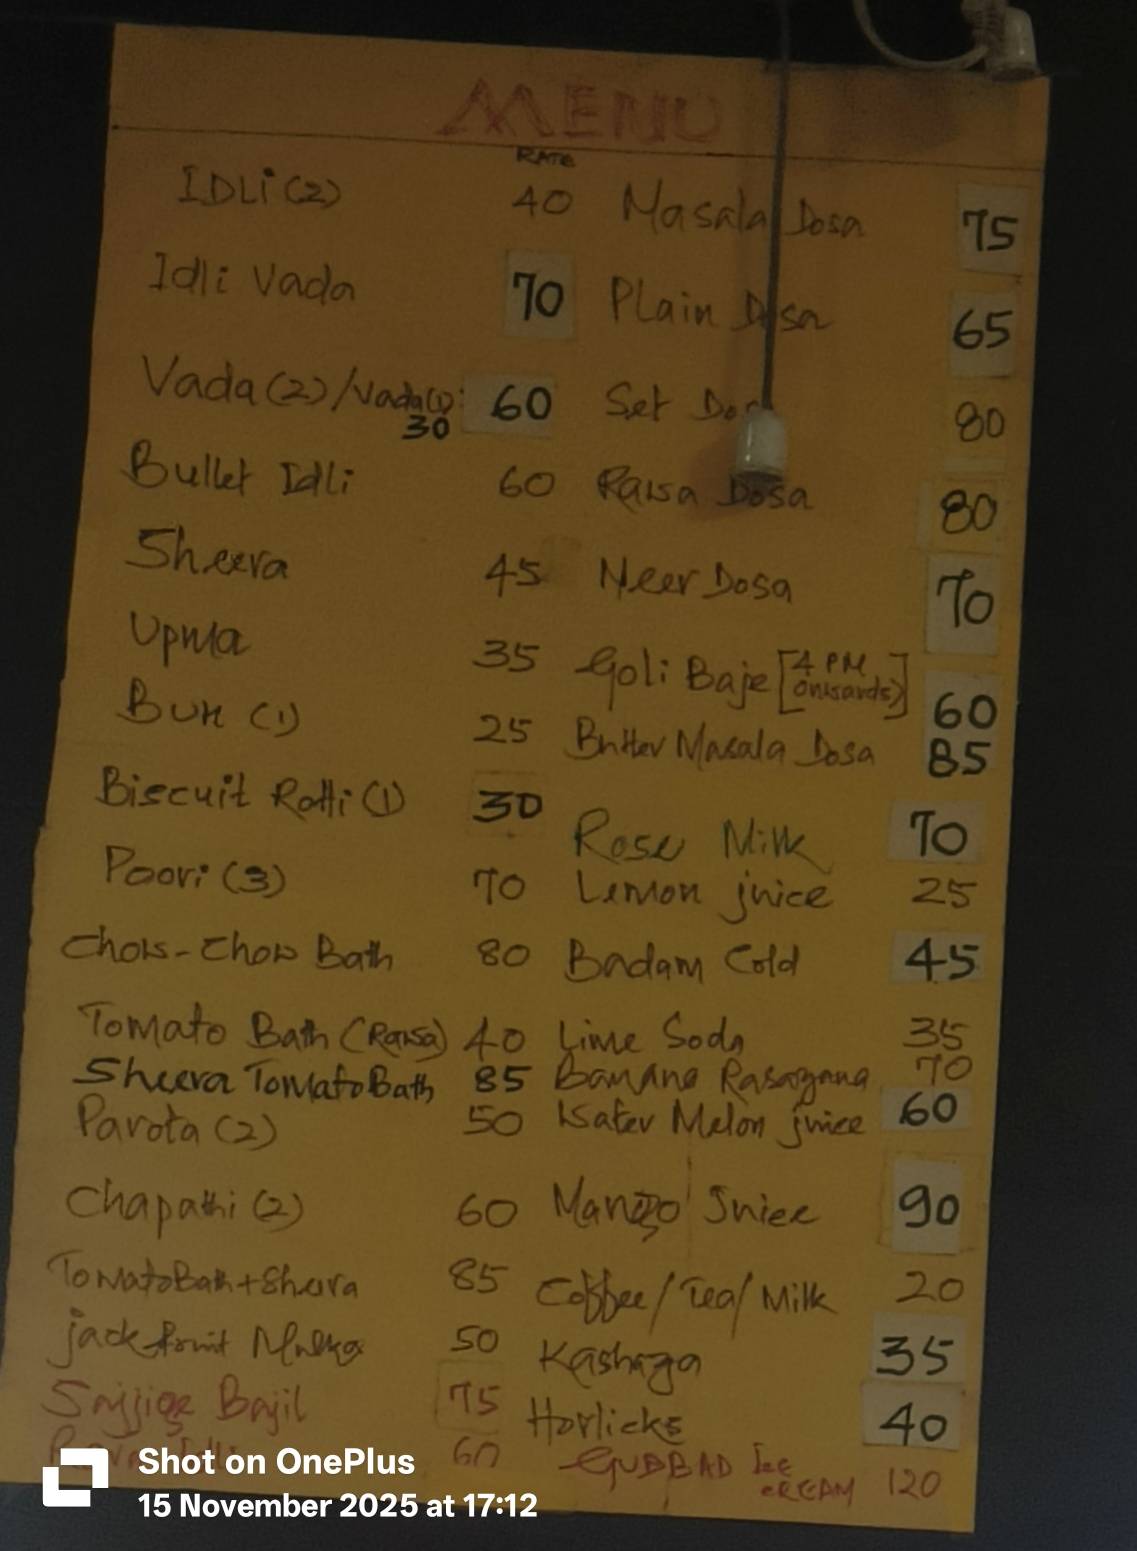 MENU
RATE
IDLi (2) 40
Idli Vada 70
Vada (2) / Vada (1): 60
30
Bullet Idli 60
Sheera 45
Upma 35
BUN (1) 25
Biscuit Rotti (1) 30
Poori (3) 70
Chow-Chow Bath 80
Tomato Bath (Rawa) 40
Sheera Tomato Bath 85
Parota (2) 50
Chapathi (2) 60
Tomato Bath + Sheera 85
jack fruit Mulka 50
Sajjige Bajil 75
60
Masala Dosa 75
Plain Dosa 65
Set 80
Rawa Dosa 80
Neer Dosa 70
Goli Baje [4 PM onwards] 60
Butter Masala Dosa 85
Rose Milk 70
Lemon juice 25
Badam Cold 45
Lime Soda 35
Banana Rasayana 70
Water Melon juice 60
Mango Juice 90
Coffee / Tea / Milk 20
Kashaya 35
Horlicks 40
GUDBAD Ice
CREAM 120
Shot on OnePlus
15 November 2025 at 17:12